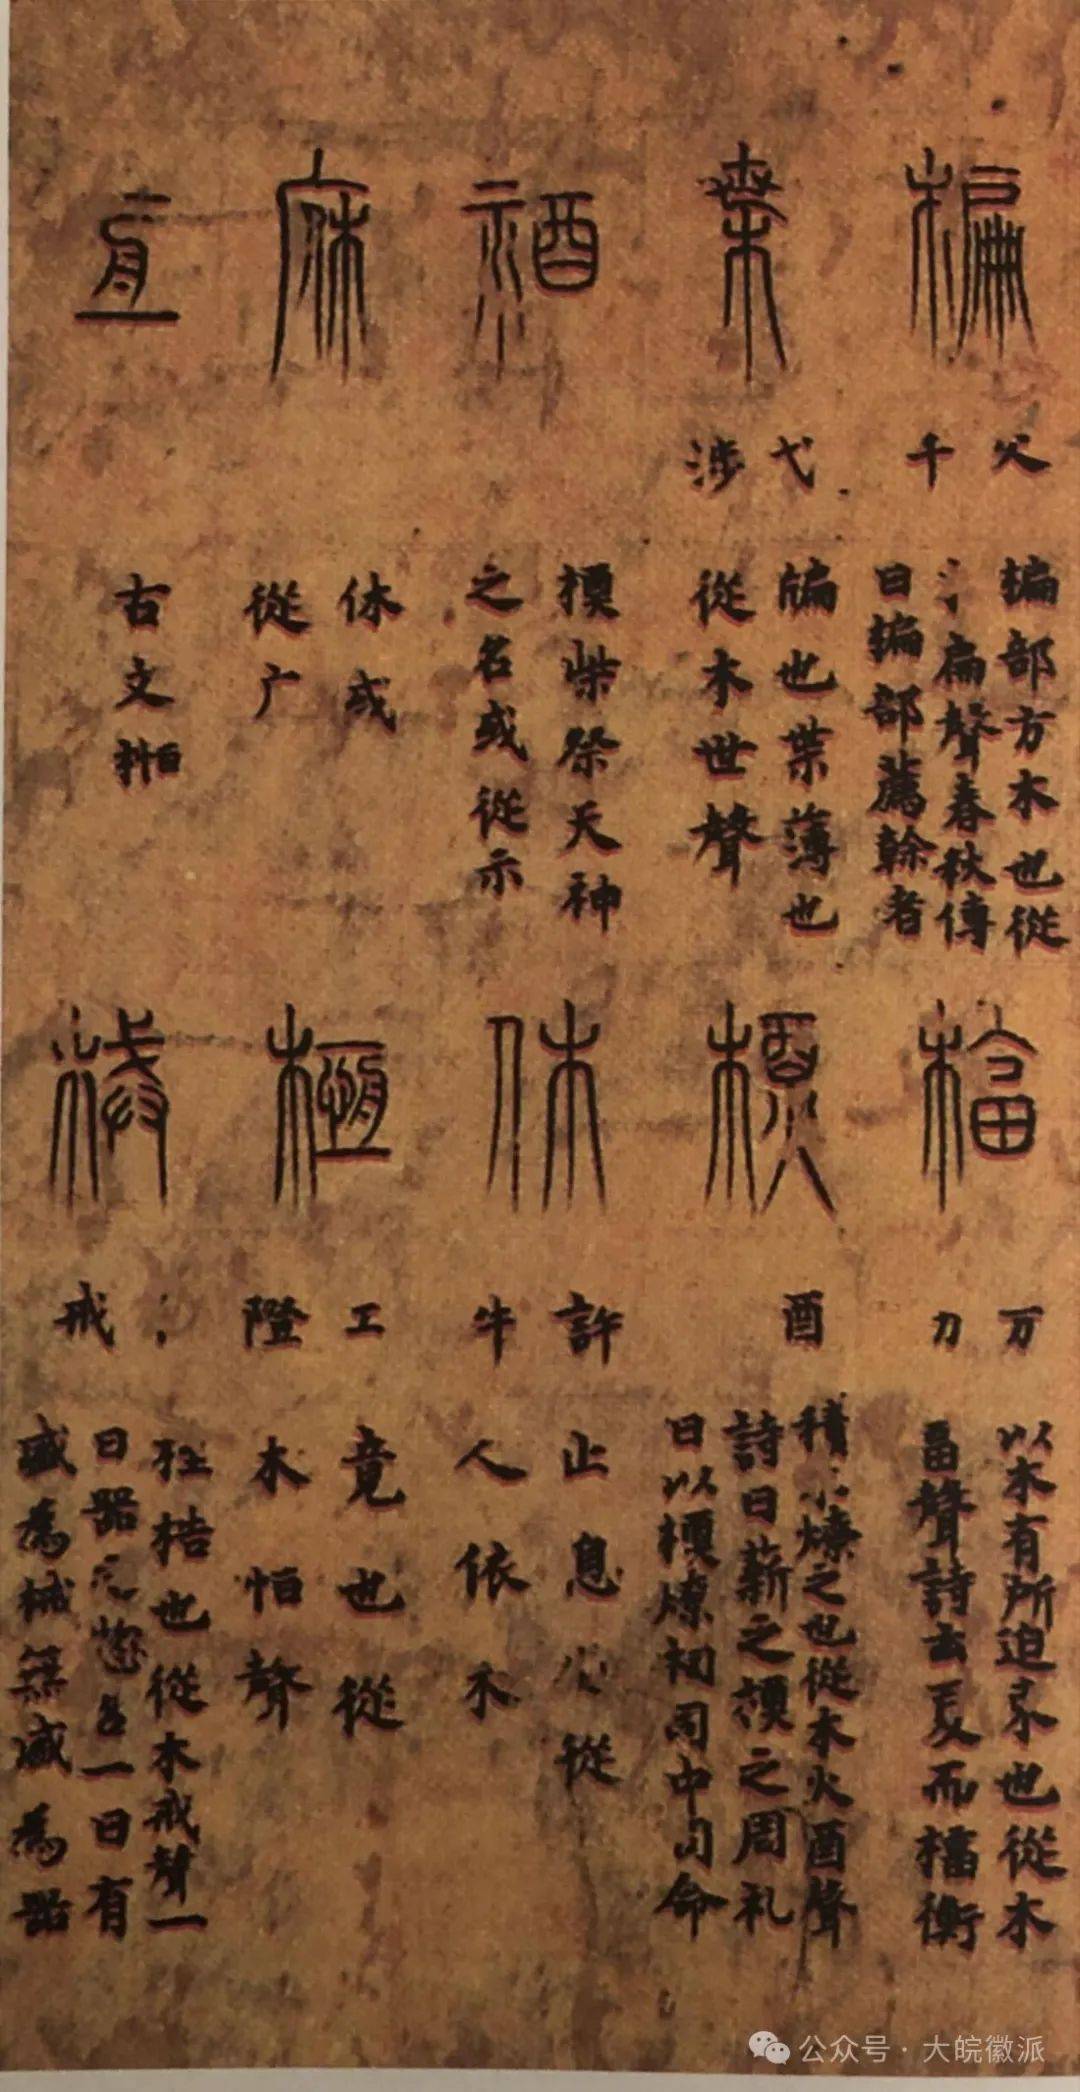 楄
父千
楄部方木也從
扁聲春秋傳
曰楄部薦榦者
楅
万力
以木有所迫束也從木
畐聲詩云夏而楅衡
枼
弋涉
牑也枼薄也
從木世聲
槱
酉
積燎之也從木火酉聲
詩曰薪之槱之周礼
曰以槱燎祠司中司命
禉
槱柴祭天神
之名或從示
休
許牛
止息也從
人依木
庥
休或
從广
㮓
工隥
竟也從
木恆聲
亙
古文㮓
械
戒
桎梏也從木戒聲一
曰器之㧾名一曰有
盛爲械無盛爲器
公众号·大皖徽派